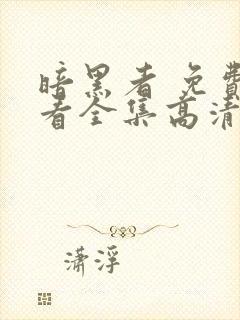 暗黑者免费
看全集高清
潇浮